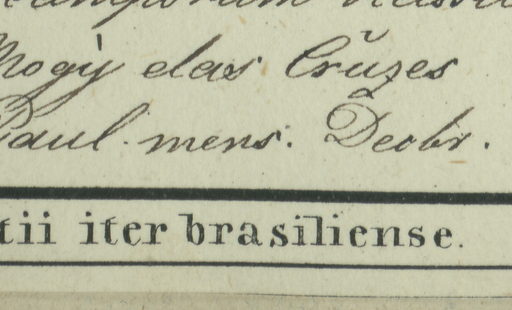 Mogÿ das Crŭzes
Paul. mens. Decbr.
tii iter brasiliense.